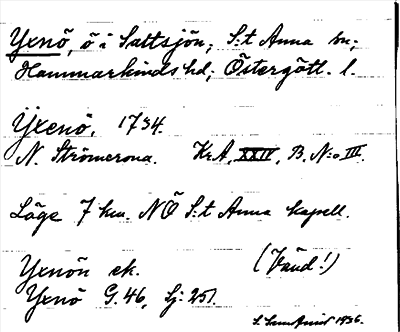 Yxnö, ö i Saltsjön; S:t Anna sn;
Hammarkinds hd; Östergötl. l.
Yxenö. 1734.
N. Strömcrona. KrA, XXIV, B. N:o III.
Läge 7 km. NÖ S:t Anna kapell.
Yxnön ek.
(Vänd!)
Yxnö G. 46, Lj: 251.
1936.